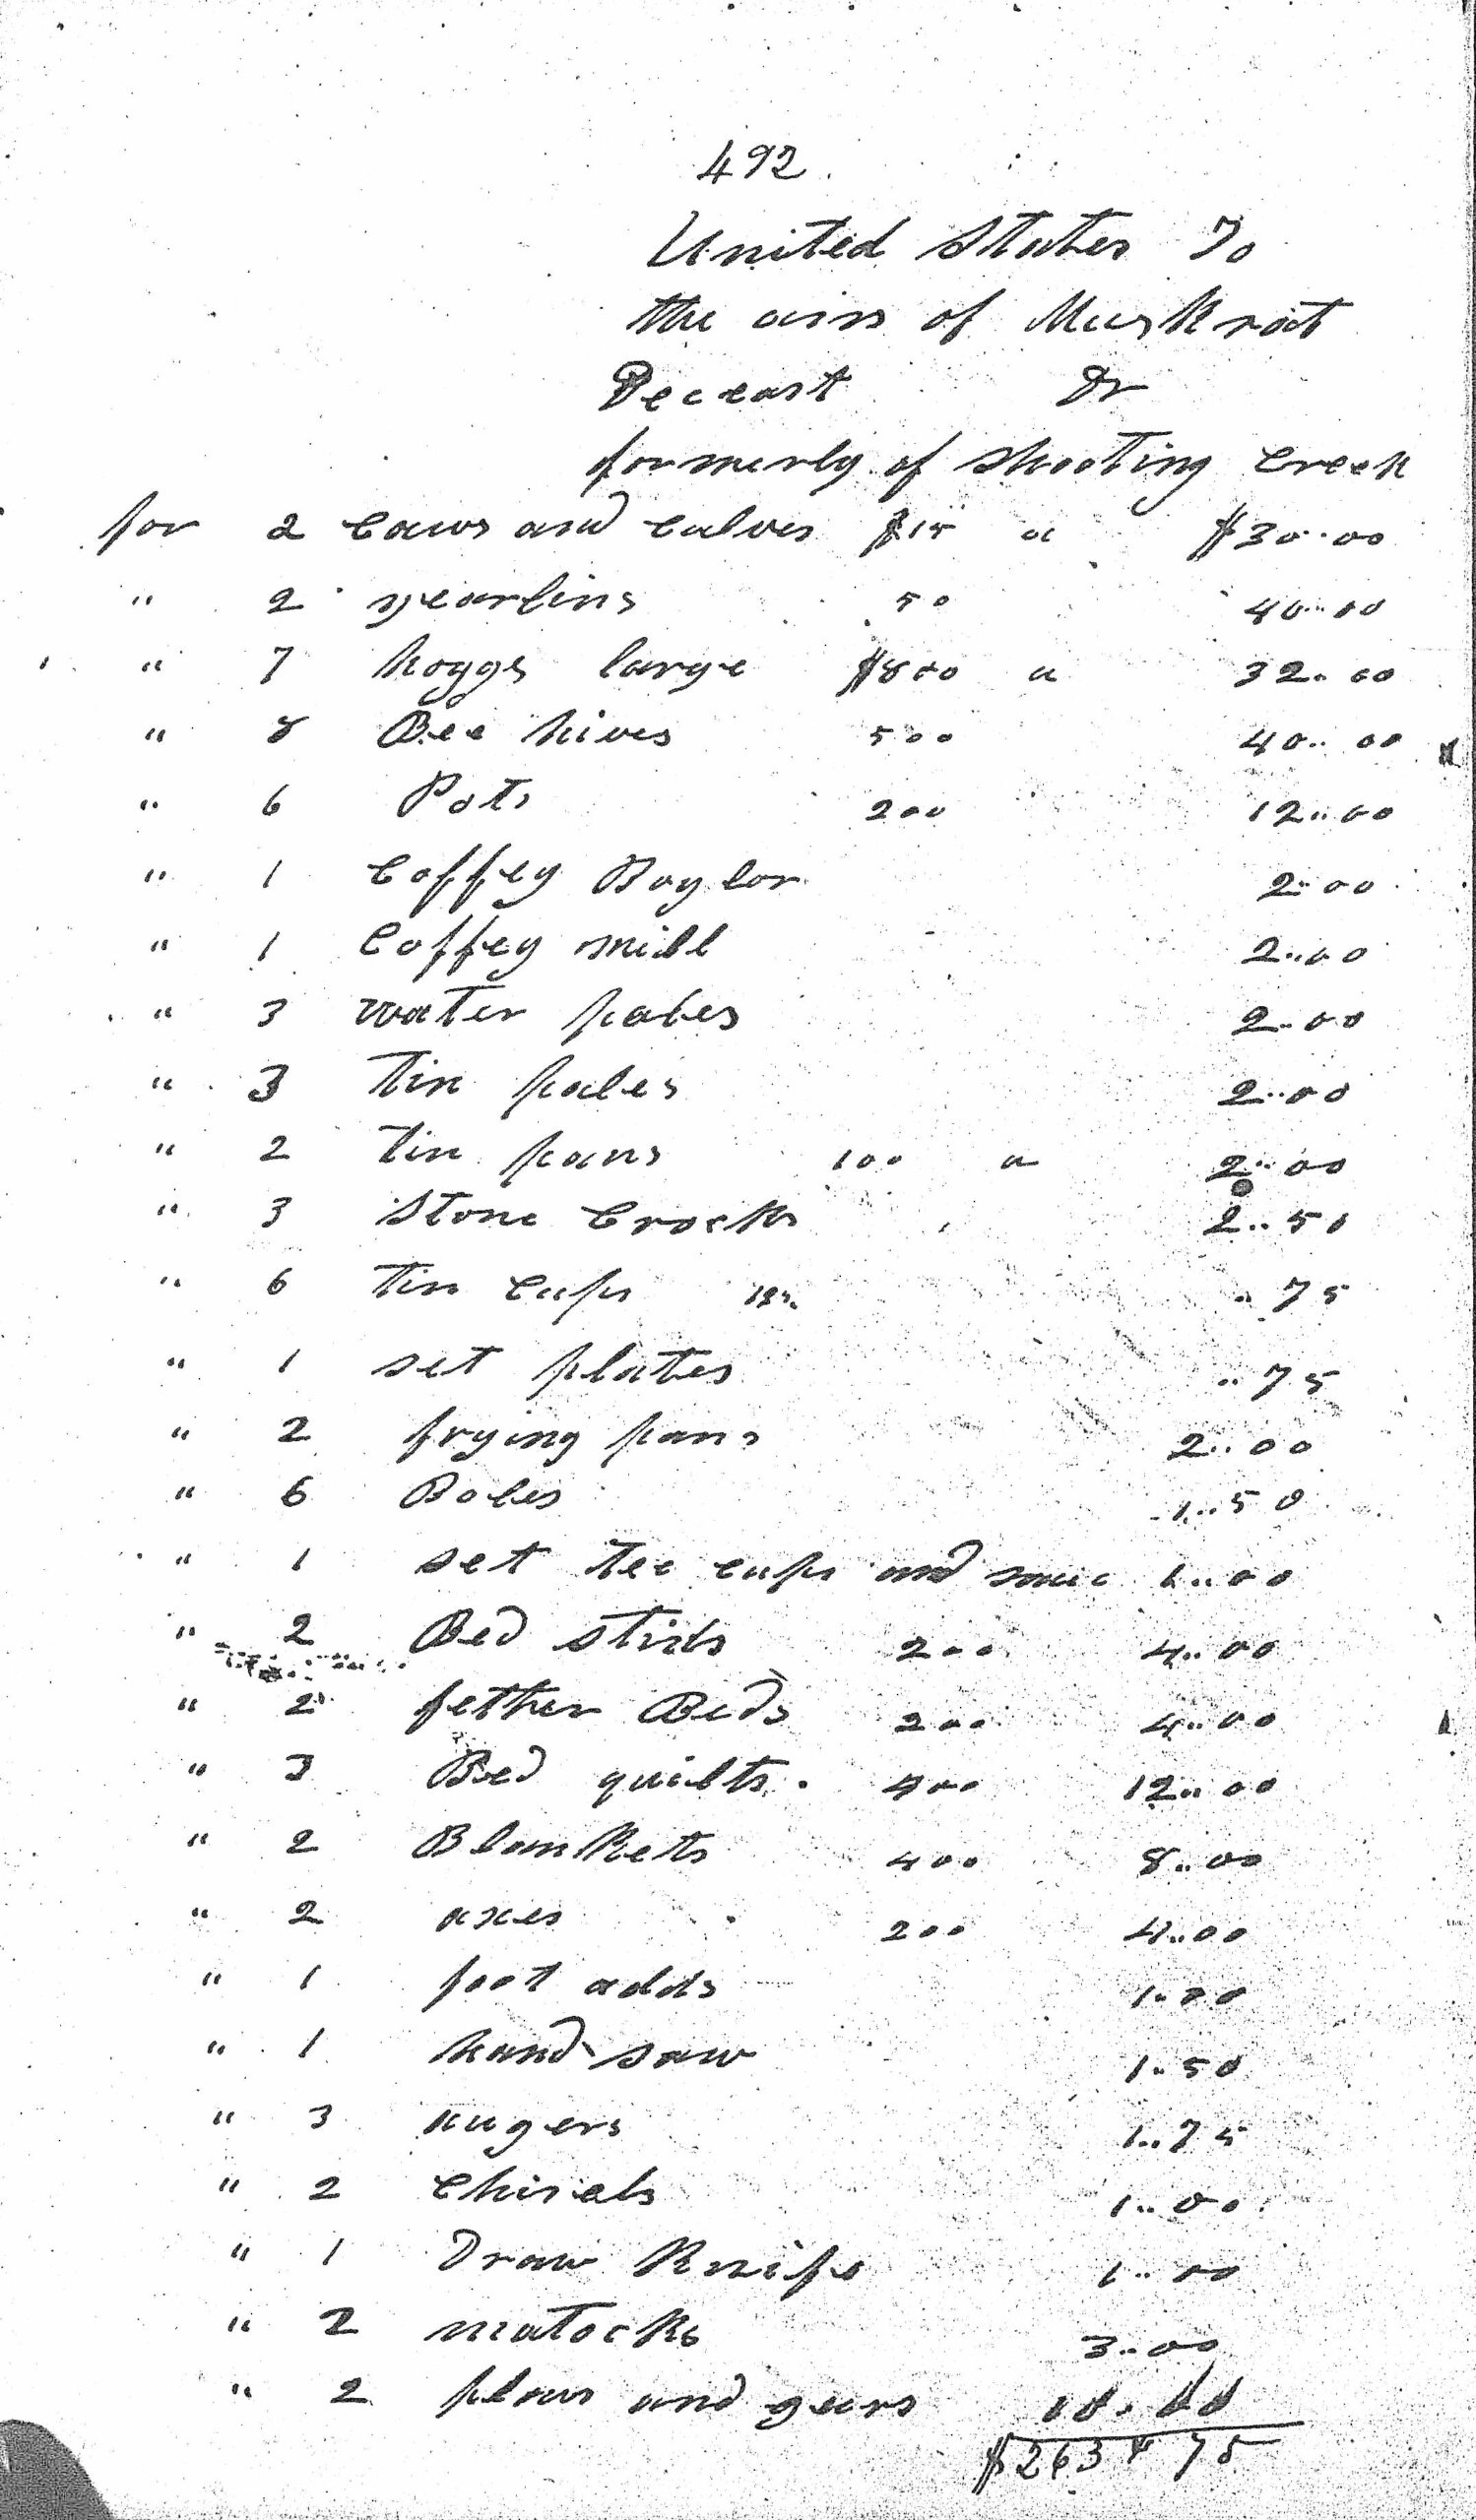 492.
United States To
the airs of Muskrat
Deceast Dr
formerly of Shooting Creek
for 2 Cows and Calves $15 a $30..00
" 2 yearlins 50 40..00
" 7 hoggs large $800 a 32..00
" 8 Bee hives 500 40..00
" 6 Pots 200 12..00
" 1 Coffey Boylor 2..00
" 1 Coffey mill 2..00
" 3 water pales 2..00
" 3 Tin pales 2..00
" 2 Tin pans 100 a 2..00
" 3 Stone Crocks 2..50
" 6 Tin Cups ..75
" 1 set plates ..75
" 2 frying pans 2..00
" 6 Boles 1..50
" 1 set Tee cups and 1..00
" 2 Bed stids 200 4..00
" 2 fether Beds 200 4..00
" 3 Bed quilts. 400 12..00
" 2 Blamkets 400 8..00
" 2 axes 200 4..00
" 1 foot adds 1..00
" 1 hand saw 1..50
" 3 augers 1..75
" 2 Chisels 1..00
" 1 Draw Knife 1..00
" 2 matocks 3..00
" 2 plows and gears
$263 75